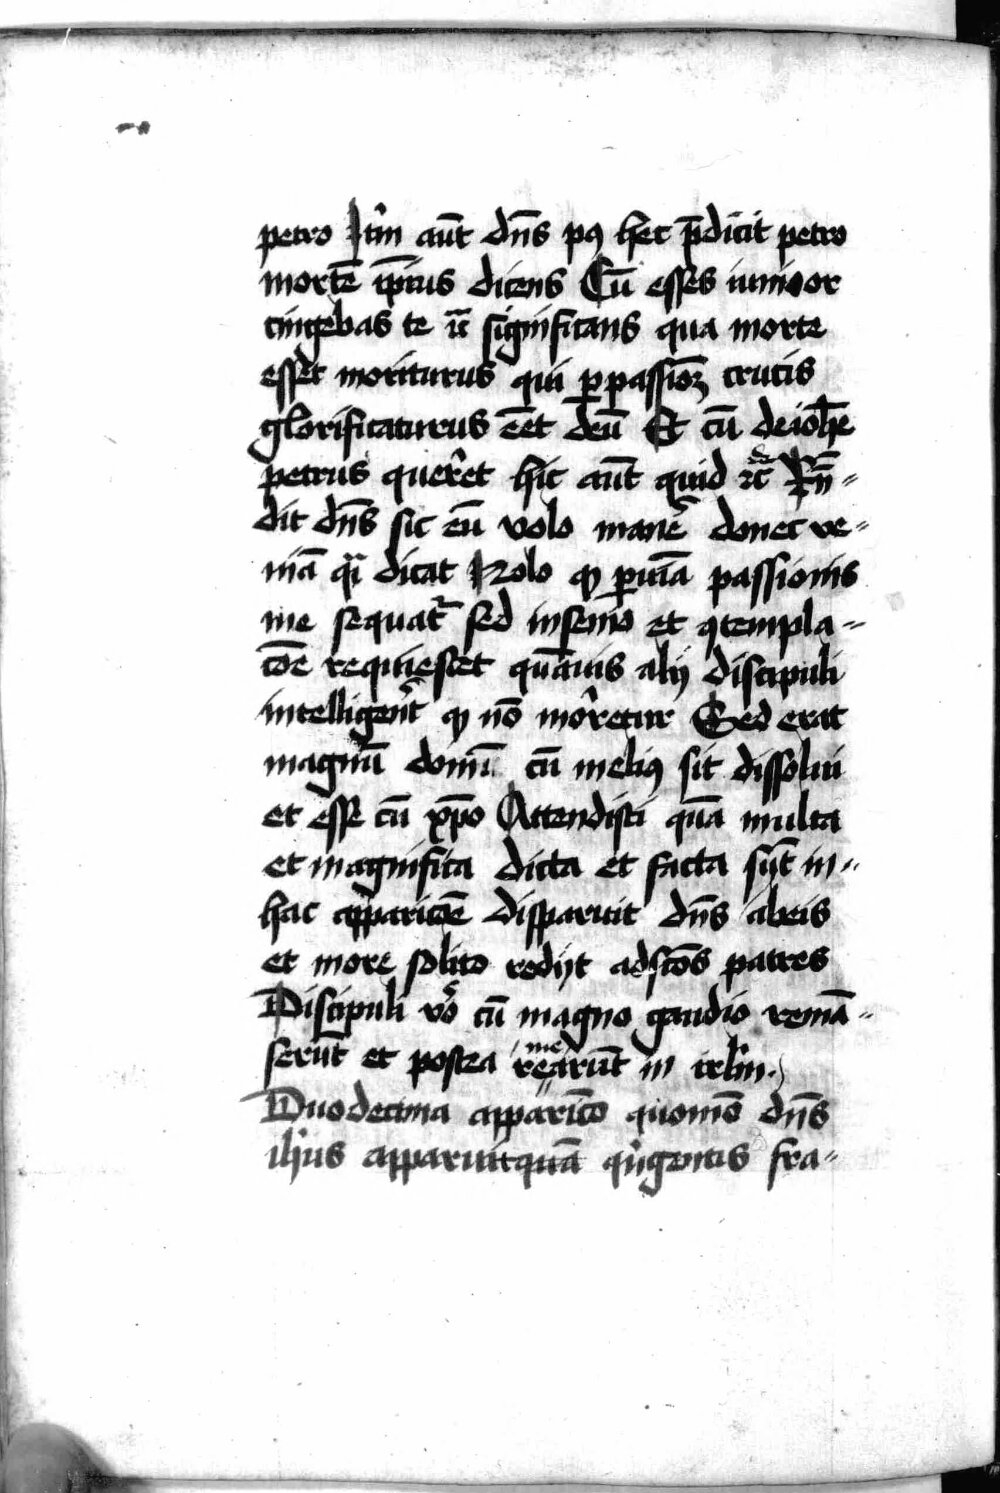 petro Itm̄ aūt dn̄s pꝰ hec p̄dicit petro
mortē ip̄ius dicens Cū esses iunior
cingebas te ⁊c̄ significans qua morte
esset moriturus qui ꝑ passionē crucis
glorificaturus eēt deū Et cū de ioh̄e
petrus quereret hic aūt quid ⁊c̄ Rn̄-
dit dn̄s sic eū volo manē donec ve-
niā q̄i dicat Nolo ꝙ ꝑ viā passionis
me sequat᷑ sed in senio et ꝯtempla-
cōe requiescet quāuis alij discipuli
intelligerēt ꝙ nō moretur Sed erat
magnū donū cū meliꝰ sit dissolui
et esse cū xp̄o Attendisti quā multa
et magnifica dicta et facta sūt in-
hac apparicōe disparuit dn̄s ab eis
et more solito redijt ad sc̄os patres
Discipuli vō cū magno gaudio remā-
serūt et postea remearūt in irl̄m.
Duodecima apparicō quomō dn̄s
ih̄us apparuit quā qn̄gentis fra-